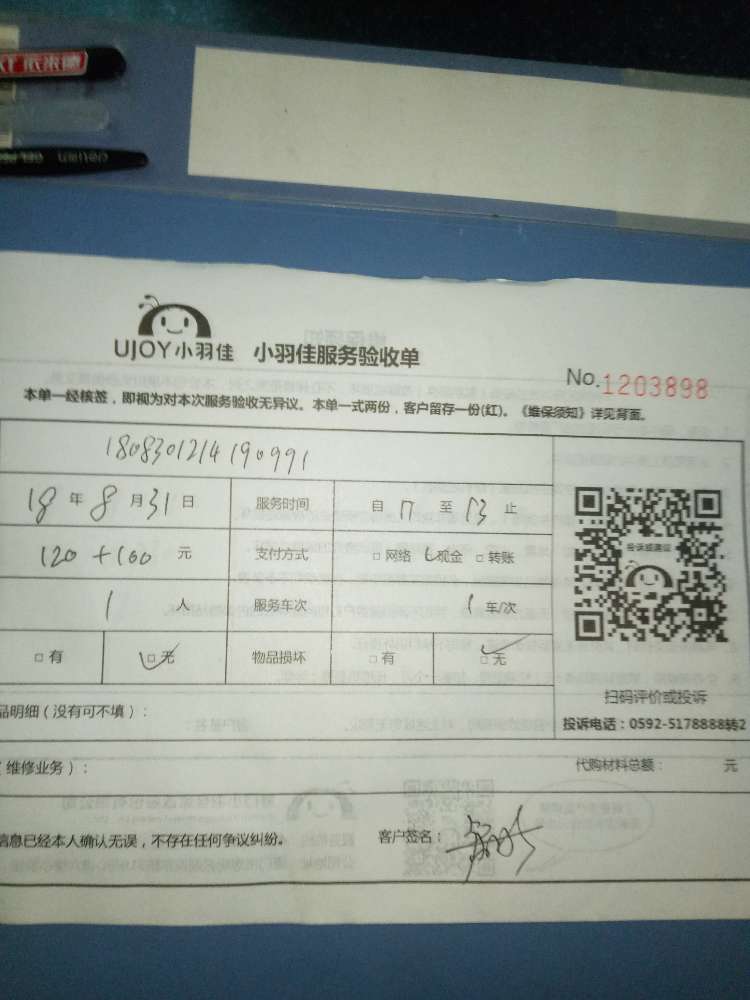 依米德
deli
GEL PEN
UJOY小羽佳 小羽佳服务验收单
No.1203898
本单一经核签，即视为对本次服务验收无异议。本单一式两份，客户留存一份(红)。《维保须知》详见背面。
1808301214190991
18 年 8 月 31 日 服务时间 自 至 13 止
120+100 元 支付方式 □网络 现金 □转账
投诉或建议
1 人 服务车次 1 车/次
□有 □无 物品损坏 □有 □无
扫码评价或投诉
品明细（没有可不填）：
投诉电话：0592-5178888转2
（维修业务）：
代购材料总额： 元
信息已经本人确认无误，不存在任何争议纠纷。 客户签名：